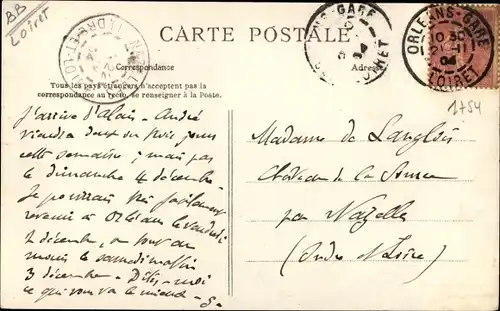 BB
Loiret
CARTE POSTALE
ORLEANS-GARE
10 30
LOIRET
Correspondance
Adresse
Tous les pays étrangers n'acceptent pas la
correspondance au recto, se renseigner à la Poste.
1754
J'arrive d'Alais - André
viendra deux ou trois jours
cette semaine ; mais pas
le dimanche 4 décembre -
Je pourrais très facilement
revenir à Orléans le vendredi
2 décembre, ou tout au
moins le samedi matin
3 décembre - Dites-moi
ce que vous va le mieux - S.
Madame de Langlois
Château de la
par Nazelles
(Indre et Loire)